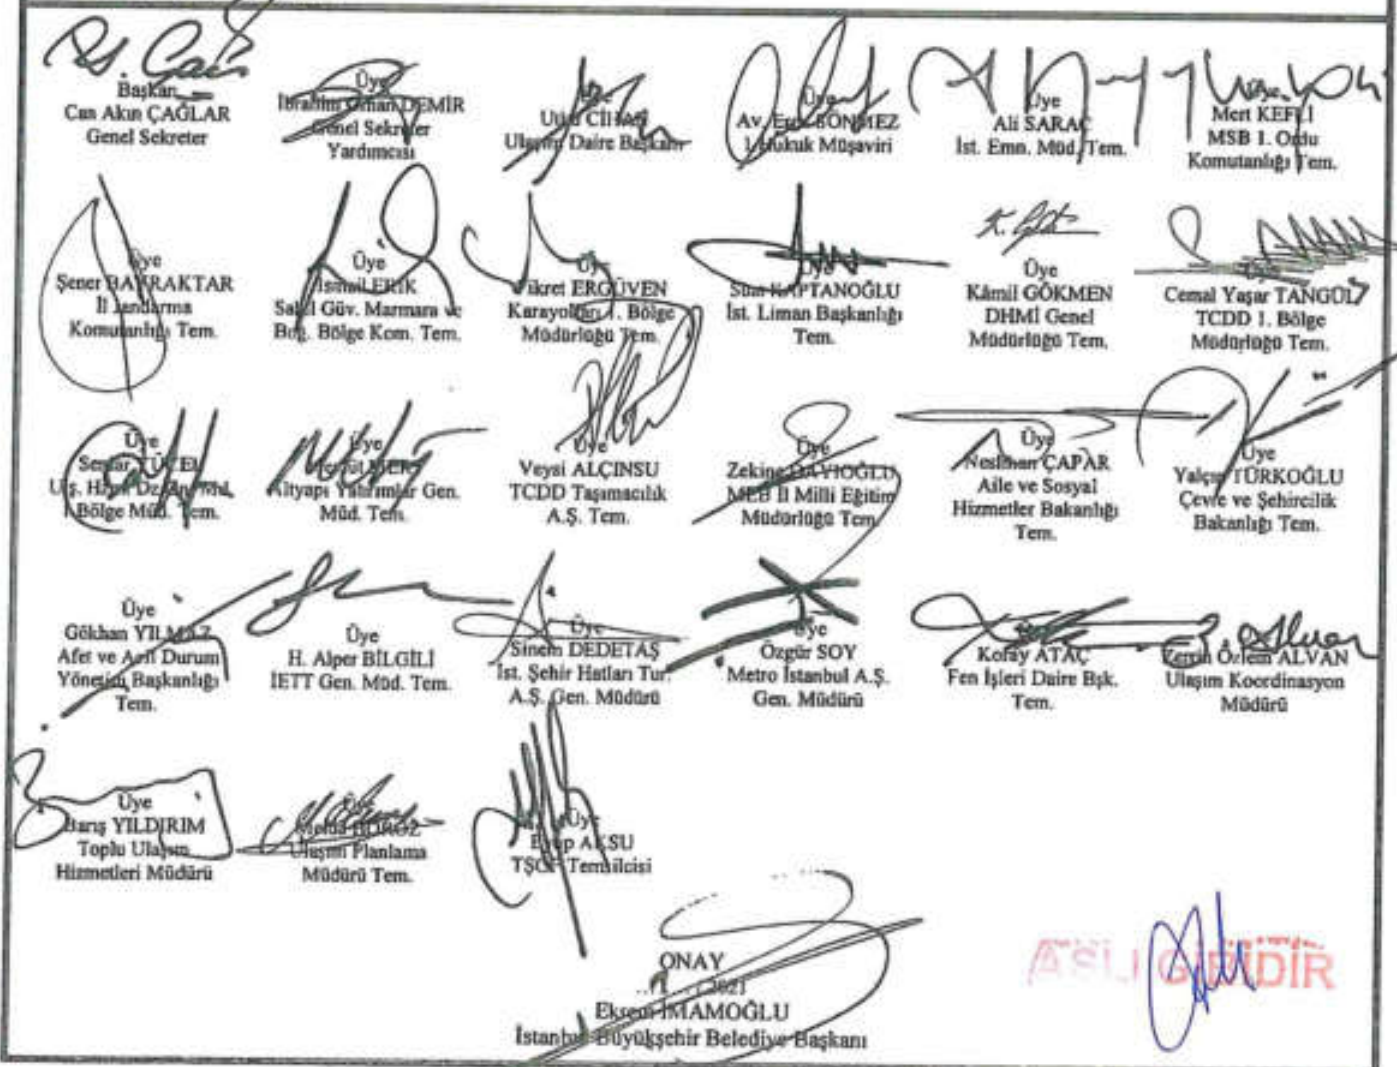 Başkan
Can Akın ÇAĞLAR
Genel Sekreter
Üye
İbrahim Orhan DEMİR
Genel Sekreter
Yardımcısı
Üye
Utku CİHAN
Ulaşım Daire Başkanı
Üye
Av. Eren SÖNMEZ
1. Hukuk Müşaviri
Üye
Ali SARAÇ
İst. Emn. Müd. Tem.
Üye
Mert KEFLİ
MSB 1. Ordu
Komutanlığı Tem.
Üye
Şener BAYRAKTAR
İl Jandarma
Komutanlığı Tem.
Üye
İsmail ERİK
Sahil Güv. Marmara ve
Boğ. Bölge Kom. Tem.
Üye
Fikret ERGÜVEN
Karayolları 1. Bölge
Müdürlüğü Tem.
Üye
KAPTANOĞLU
İst. Liman Başkanlığı
Tem.
Üye
Kâmil GÖKMEN
DHMİ Genel
Müdürlüğü Tem.
Üye
Cemal Yaşar TANGÜL
TCDD 1. Bölge
Müdürlüğü Tem.
Üye
Serdar YÜCEL
Bölge Müd. Tem.
Üye
MERT
Altyapı Yatırımlar Gen.
Müd. Tem.
Üye
Veysi ALÇINSU
TCDD Taşımacılık
A.Ş. Tem.
Üye
Zekine DAYIOĞLU
MEB İl Milli Eğitim
Müdürlüğü Tem.
Üye
Neslihan ÇAPAR
Aile ve Sosyal
Hizmetler Bakanlığı
Tem.
Üye
Yalçın TÜRKOĞLU
Çevre ve Şehircilik
Bakanlığı Tem.
Üye
Gökhan YILMAZ
Afet ve Acil Durum
Yönetimi Başkanlığı
Tem.
Üye
H. Alper BİLGİLİ
İETT Gen. Müd. Tem.
Üye
Sinem DEDETAŞ
İst. Şehir Hatları Tur.
A.Ş. Gen. Müdürü
Üye
Özgür SOY
Metro İstanbul A.Ş.
Gen. Müdürü
Üye
Koray ATAÇ
Fen İşleri Daire Bşk.
Tem.
Zerrin Özlem ALVAN
Ulaşım Koordinasyon
Müdürü
Üye
Barış YILDIRIM
Toplu Ulaşım
Hizmetleri Müdürü
Üye
Ulaşım Planlama
Müdürü Tem.
Üye
Eyüp AKSU
TŞOF Temsilcisi
ONAY
2021
Ekrem İMAMOĞLU
İstanbul Büyükşehir Belediye Başkanı
ASLI GİBİDİR